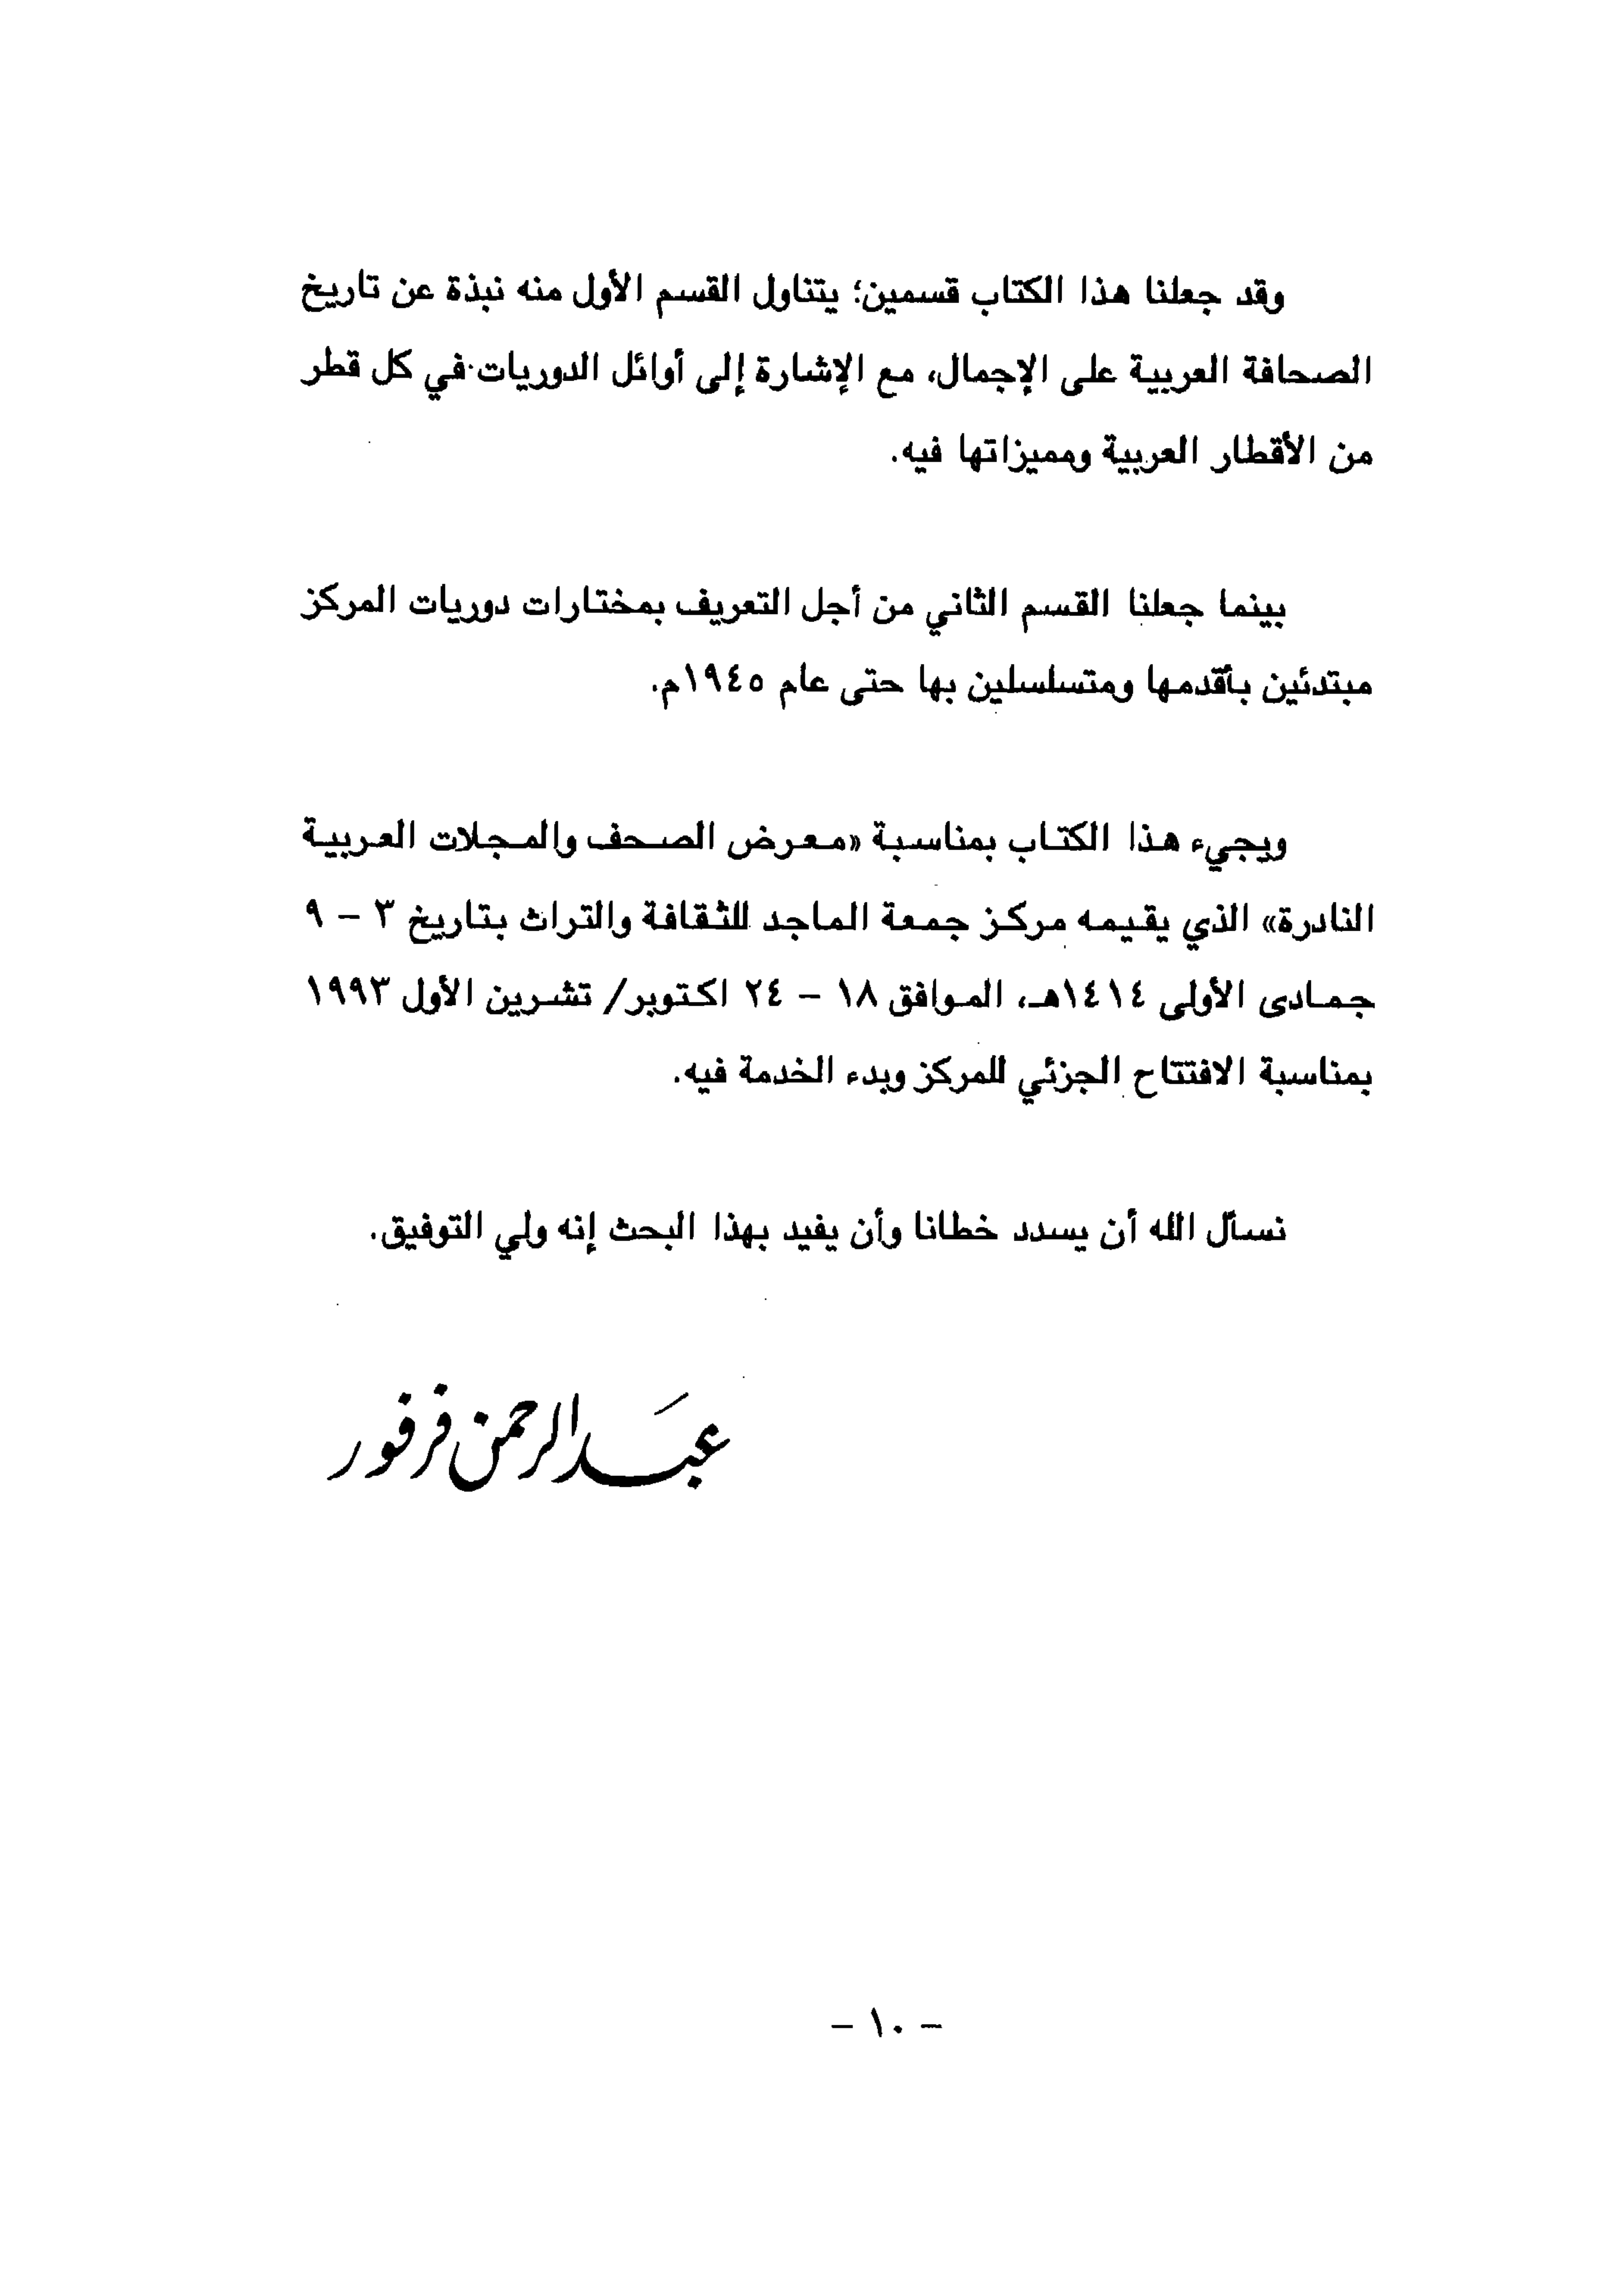 وقد جعلنا هذا الكتاب قسمين؛ يتناول القسم الأول منه نبذة عن تاريخ
الصحافة العربية على الإجمال، مع الإشارة إلى أوائل الدوريات في كل قطر
من الأقطار العربية ومميزاتها فيه.
بينما جعلنا القسم الثاني من أجل التعريف بمختارات دوريات المركز
مبتدئين بأقدمها ومتسلسلين بها حتى عام ١٩٤٥م.
ويجيء هذا الكتاب بمناسبة «معرض الصحف والمجلات العربية
النادرة» الذي يقيمه مركز جمعة الماجد للثقافة والتراث بتاريخ ٣ - ٩
جمادى الأولى ١٤١٤هـ، الموافق ١٨ - ٢٤ اكتوبر/ تشرين الأول ١٩٩٣
بمناسبة الافتتاح الجزئي للمركز وبدء الخدمة فيه.
نسأل الله أن يسدد خطانا وأن يفيد بهذا البحث إنه ولي التوفيق.
عبد الرحمن فرفور
- ١٠ -